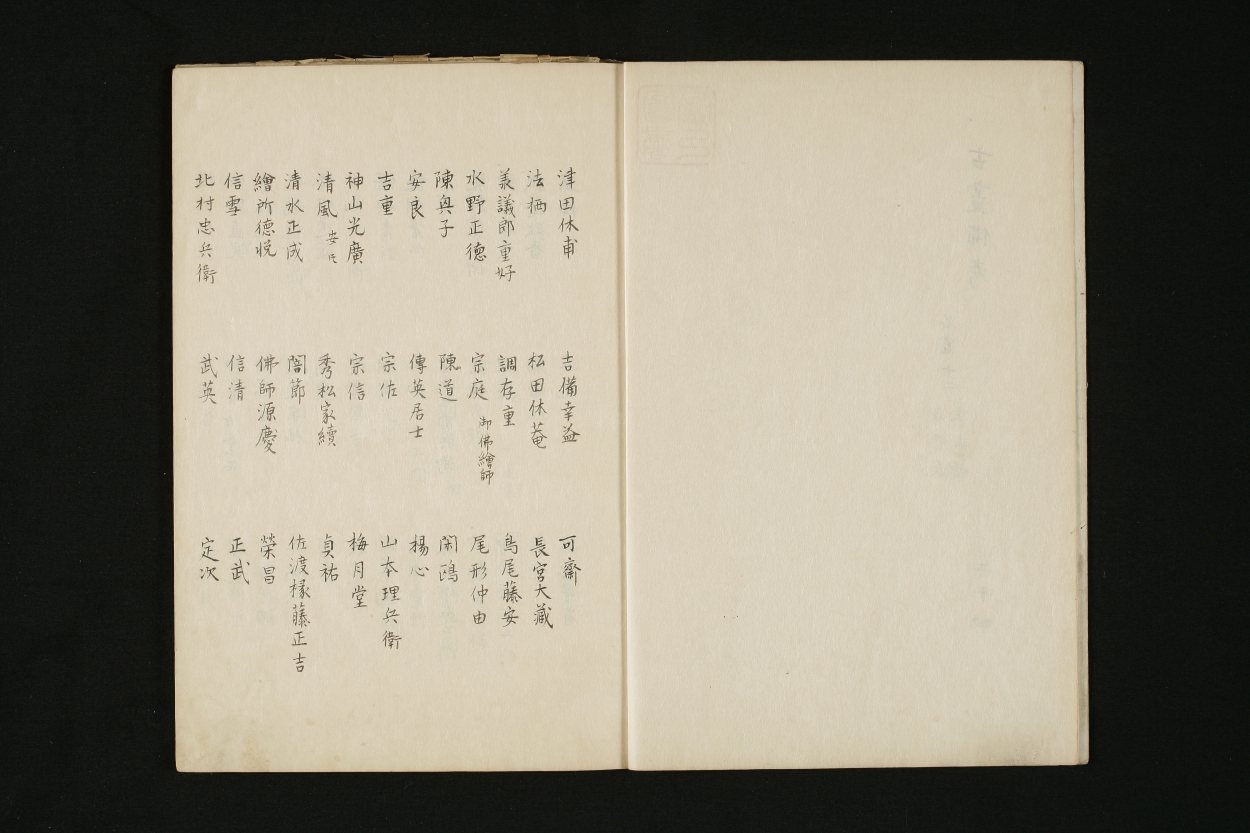 津田休甫　吉備幸益　可齋
法橋　松田休菴　長宮大藏
義議郎重好　調存重　鳥尾藤安
水野正德　宗庭　御佛繪師　尾形仲由
陳奥子　陳道　閑鷗
安良　傳英居士　楊心
吉重　宗佐　山本理兵衛
神山光廣　宗信　梅月堂
清風　安氏　秀松家續　貞祐
清水正成　闇節　佐渡椽藤正吉
繪所德悦　佛師源慶　榮昌
信雪　信清　正武
北村忠兵衛　武英　定次